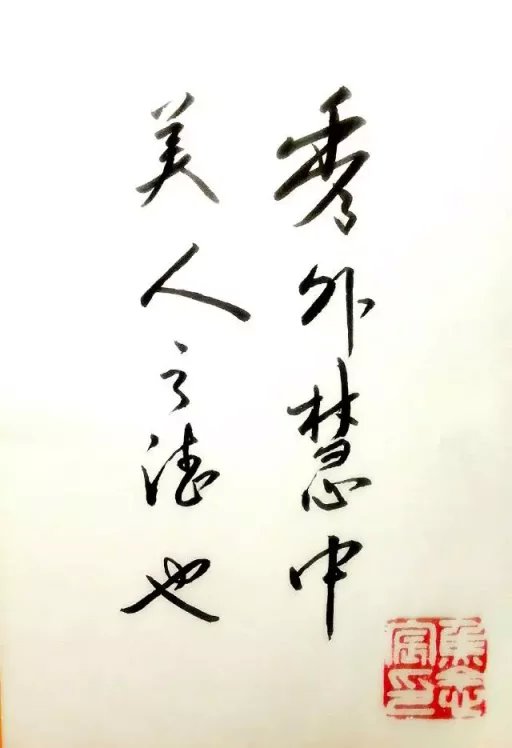 秀外慧中
美人之德也